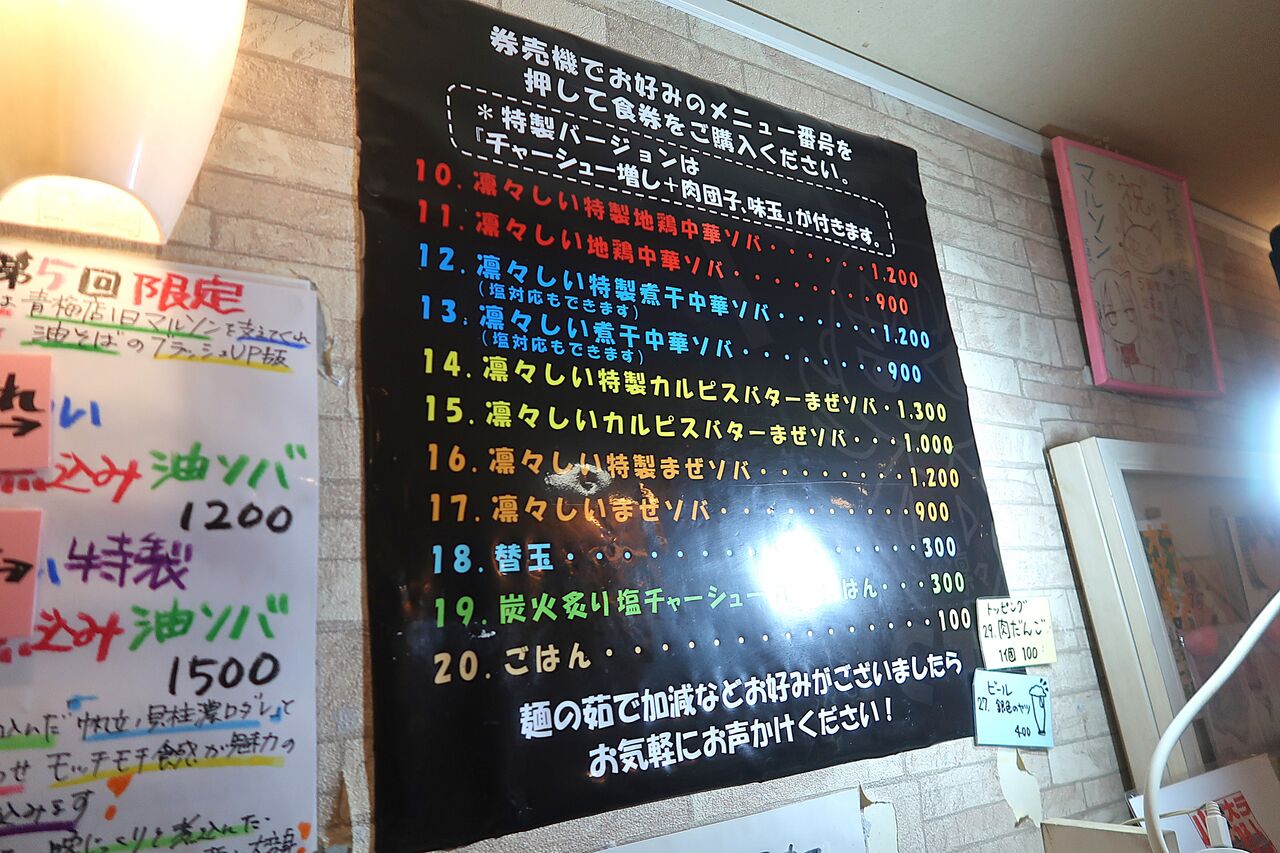 券売機でお好みのメニュー番号を
押して食券をご購入ください。
＊特製バージョンは
『チャーシュー増し＋肉団子、味玉』が付きます。
10. 凛々しい特製地鶏中華ソバ・・・・・・1.200
11. 凛々しい地鶏中華ソバ・・・・・・・・900
12. 凛々しい特製煮干中華ソバ・・・・・・1.200
(塩対応もできます)
13. 凛々しい煮干中華ソバ・・・・・・・・900
(塩対応もできます)
14. 凛々しい特製カルピスバターまぜソバ・1.300
15. 凛々しいカルピスバターまぜソバ・・・1.000
16. 凛々しい特製まぜソバ・・・・・・・・1.200
17. 凛々しいまぜソバ・・・・・・・・・・900
18. 替玉・・・・・・・・・・・・・・・・300
19. 炭火炙り塩チャーシュー はん・・・300
20. ごはん・・・・・・・・・・・・・・・100
麺の茹で加減などお好みがございましたら
お気軽にお声かけください！
第5回限定
青梅店1日マルソンを支えてくれ
油そばのブラッシュUP版
れ
い
込み油ソバ
1200
特製
込み油ソバ
1500
込んだ 帆立、貝柱濃口ダレと
わせ モッチモチ食感が魅力の
込みます
煮込んだ
トッピング
29. 肉だんご
1個 100
ビール
27. 銀色のヤツ
400
祝
マルソン